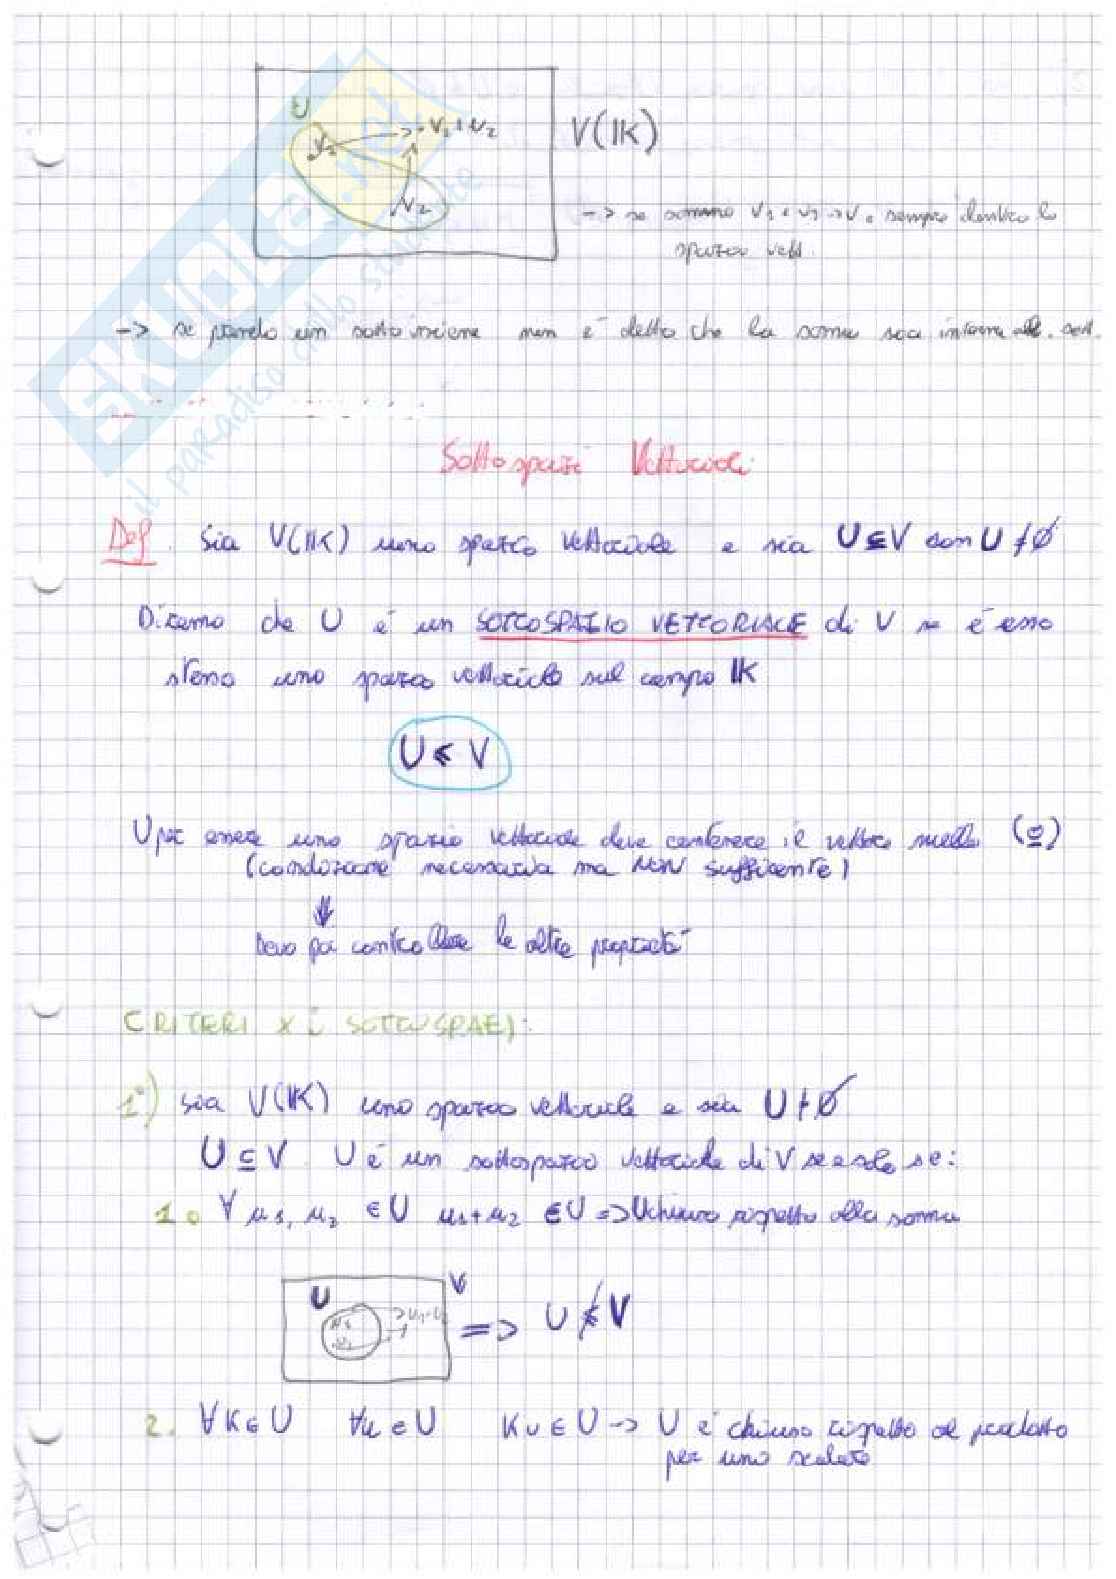 U
V₁ V₁+V₂
V₂
V(IK)
-> se sommo V₁ e V₂ -> V è sempre dentro lo
spazio vett.
-> se prendo un sottoinsieme non è detto che la somma sia interna al. sott.
Sottospazi Vettoriali
Def Sia V(IK) uno spazio vettoriale e sia U⊆V con U ≠ ∅
Diremo che U é un SOTTOSPAZIO VETTORIALE di V se é esso
stesso uno spazio vettoriale sul campo IK
U ≤ V
U per essere uno spazio vettoriale deve contenere il vettore nullo (0)
(condizione necessaria ma NON sufficente)
⇓
Devo poi controllare le altre proprietá
CRITERI X i SOTTOSPAZI:
1°) Sia V(IK) uno spazio vettoriale e sia U ≠ ∅
U ⊆ V U é un sottospazio vettoriale di V se e solo se:
1. ∀ u₁, u₂ ∈ U u₁+u₂ ∈ U => U chiuso rispetto alla somma
U V
u₁ u₁+u₂
u₂
=> U ≰ V
2. ∀K∈U ∀u∈U Ku∈U -> U é chiuso rispetto al prodotto
per uno scalare
SKUOLA.net
il paradiso dello studente